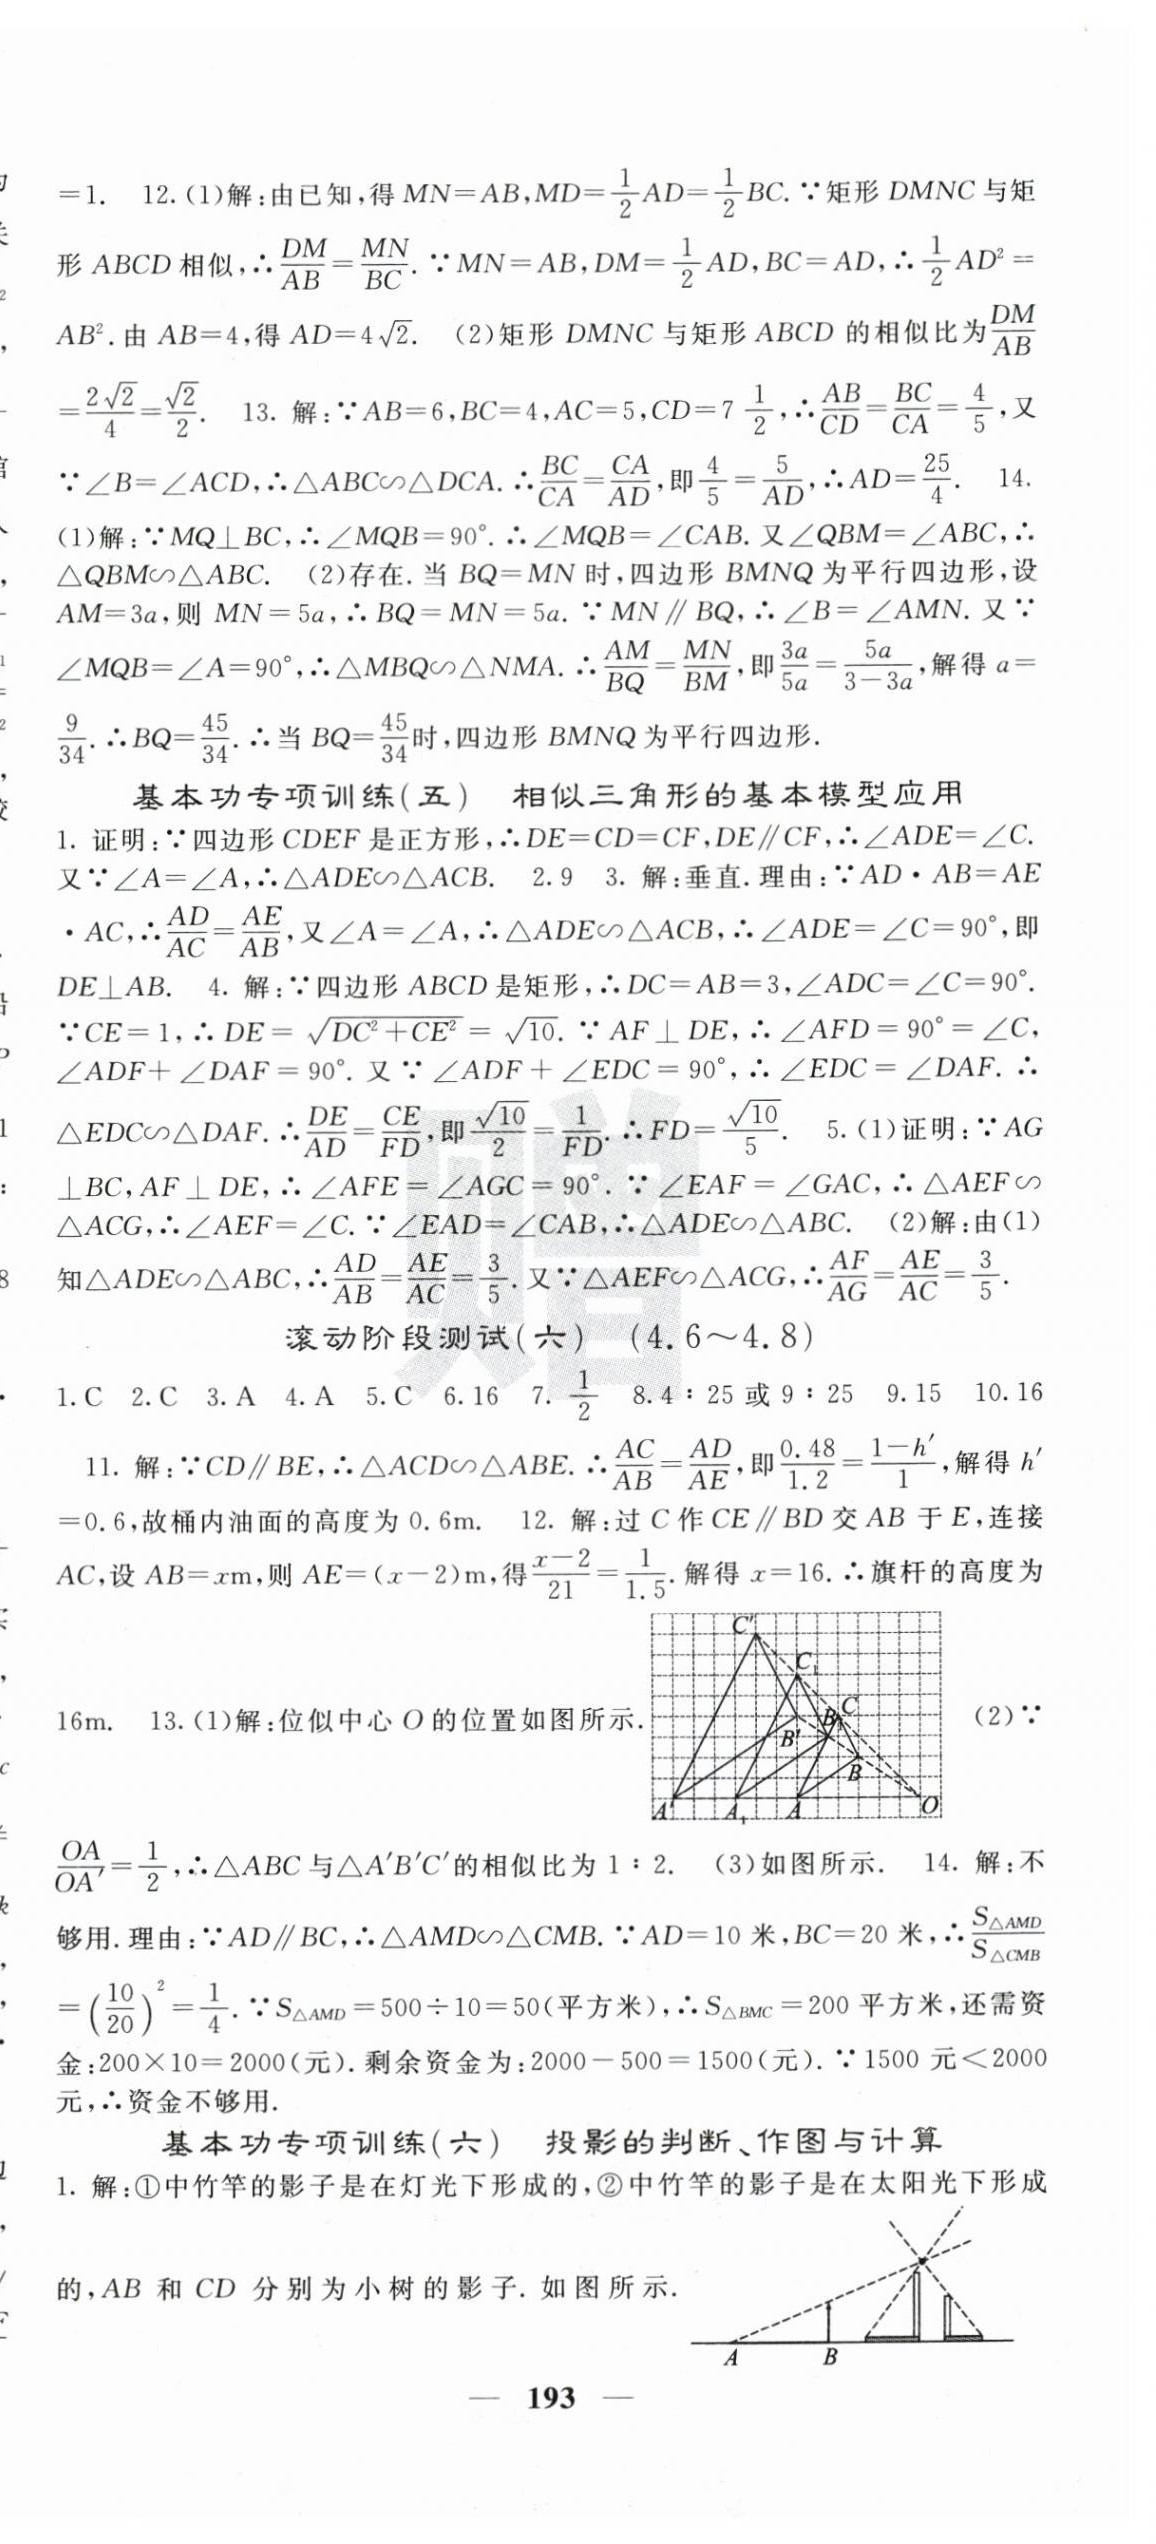 =1. 12.(1)解:由已知,得 MN=AB,MD=1/2AD=1/2BC.∵矩形 DMNC 与矩
形 ABCD 相似,∴DM/AB=MN/BC.∵MN=AB,DM=1/2AD,BC=AD,∴1/2AD²=
AB².由 AB=4,得 AD=4√2. (2)矩形 DMNC 与矩形 ABCD 的相似比为DM/AB
=2√2/4=√2/2. 13. 解:∵AB=6,BC=4,AC=5,CD=7 1/2,∴AB/CD=BC/CA=4/5,又
∵∠B=∠ACD,∴△ABC∽△DCA.∴BC/CA=CA/AD,即4/5=5/AD,∴AD=25/4. 14.
(1)解:∵MQ⊥BC,∴∠MQB=90°.∴∠MQB=∠CAB.又∠QBM=∠ABC,∴
△QBM∽△ABC. (2)存在.当 BQ=MN 时,四边形 BMNQ 为平行四边形,设
AM=3a,则 MN=5a,∴BQ=MN=5a.∵MN∥BQ,∴∠B=∠AMN.又∵
∠MQB=∠A=90°,∴△MBQ∽△NMA.∴AM/BQ=MN/BM,即3a/5a=5a/(3-3a),解得 a=
9/34.∴BQ=45/34.∴当 BQ=45/34时,四边形 BMNQ 为平行四边形.
基本功专项训练(五) 相似三角形的基本模型应用
1. 证明:∵四边形 CDEF 是正方形,∴DE=CD=CF,DE∥CF,∴∠ADE=∠C.
又∵∠A=∠A,∴△ADE∽△ACB. 2.9 3. 解:垂直.理由:∵AD·AB=AE
·AC,∴AD/AC=AE/AB,又∠A=∠A,∴△ADE∽△ACB,∴∠ADE=∠C=90°,即
DE⊥AB. 4. 解:∵四边形 ABCD 是矩形,∴DC=AB=3,∠ADC=∠C=90°.
∵CE=1,∴DE=√(DC²+CE²)=√10.∵AF⊥DE,∴∠AFD=90°=∠C,
∠ADF+∠DAF=90°.又∵∠ADF+∠EDC=90°,∴∠EDC=∠DAF.∴
△EDC∽△DAF.∴DE/AD=CE/FD,即√10/2=1/FD.∴FD=√10/5. 5.(1)证明:∵AG
⊥BC,AF⊥DE,∴∠AFE=∠AGC=90°.∵∠EAF=∠GAC,∴△AEF∽
△ACG,∴∠AEF=∠C.∵∠EAD=∠CAB,∴△ADE∽△ABC. (2)解:由(1)
知△ADE∽△ABC,∴AD/AB=AE/AC=3/5.又∵△AEF∽△ACG,∴AF/AG=AE/AC=3/5.
赠
滚动阶段测试(六) (4.6~4.8)
1.C 2.C 3.A 4.A 5.C 6.16 7. 1/2 8.4∶25 或 9∶25 9.15 10.16
11. 解:∵CD∥BE,∴△ACD∽△ABE.∴AC/AB=AD/AE,即0.48/1.2=(1-h′)/1,解得 h′
=0.6,故桶内油面的高度为 0.6m. 12. 解:过 C 作 CE∥BD 交 AB 于 E,连接
AC,设 AB=xm,则 AE=(x-2)m,得(x-2)/21=1/1.5.解得 x=16.∴旗杆的高度为
16m. 13.(1)解:位似中心 O 的位置如图所示. (2)∵
C′
C₁
C
B₁
B′
B
A′ A₁ A O
OA/OA′=1/2,∴△ABC 与△A′B′C′的相似比为 1∶2. (3)如图所示. 14. 解:不
够用.理由:∵AD∥BC,∴△AMD∽△CMB.∵AD=10 米,BC=20 米,∴S△AMD/S△CMB
=(10/20)²=1/4.∵S△AMD=500÷10=50(平方米),∴S△BMC=200 平方米,还需资
金:200×10=2000(元).剩余资金为:2000-500=1500(元).∵1500 元<2000
元,∴资金不够用.
基本功专项训练(六) 投影的判断、作图与计算
1. 解:①中竹竿的影子是在灯光下形成的,②中竹竿的影子是在太阳光下形成
的,AB 和 CD 分别为小树的影子.如图所示.
A B
— 193 —